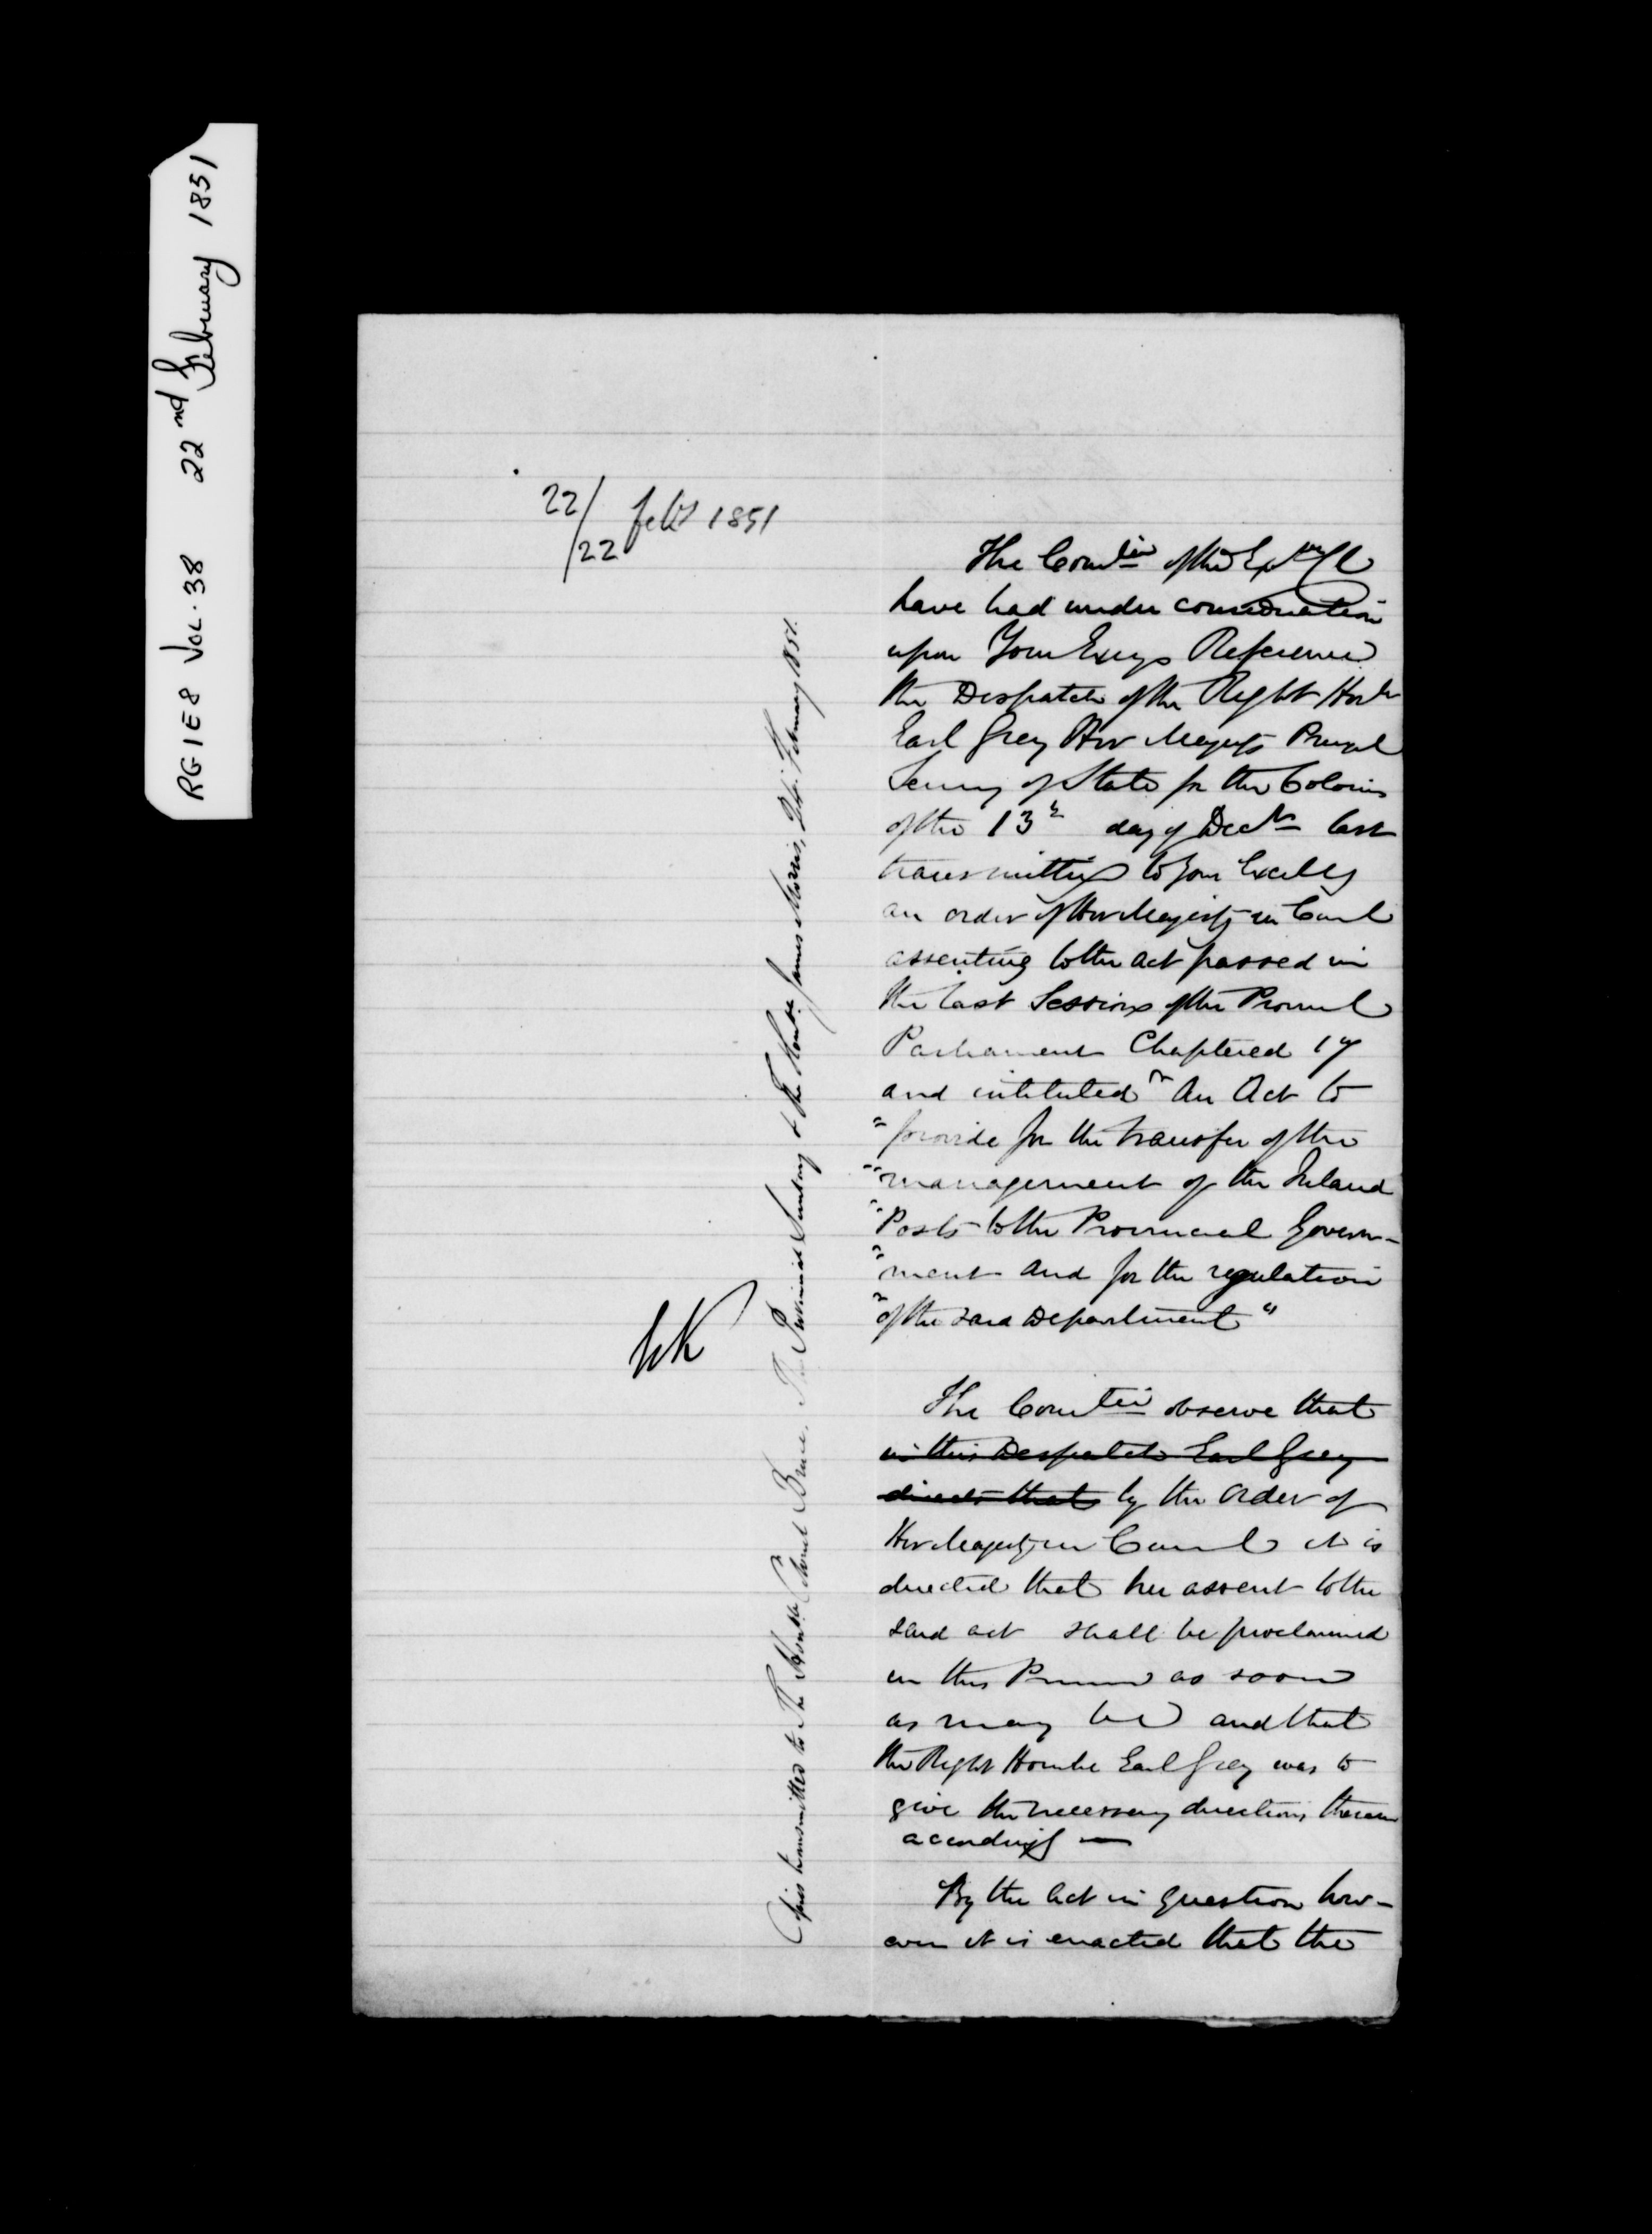 RG1E8 VOL. 38 22nd February 1851
22/22 Feby 1851
The Comtee of the Exve Cl
have had under consideration
upon Your Excys Reference
the Despatch of the Right Honle
Earl Grey Her Majestys Principal
Secretary of State for the Colonies
of the 13th day of Decr last
transmitting to Your Excelly
an order of Her Majesty in Council
assenting to the act passed in
the last Session of the Provincial
Parliament Chaptered 17
and intituled "An Act to
"provide for the transfer of the
"management of the Inland
"Posts to the Provincial Govern-
"ment and for the regulation
"of the said Department"
The Comtee observe that
in this Despatch Earl Grey
directs that by the order of
Her Majesty in Council it is
directed that her assent to the
said act shall be proclaimed
in this Province as soon
as may be and that
the Right Honble Earl Grey was to
give the necessary directions therein
accordingly —
By the Act in question how-
ever it is enacted that the
Copies transmitted to The Honble Colonel Bruce. The Provincial Secretary & The Honble James Morris, February 1851.